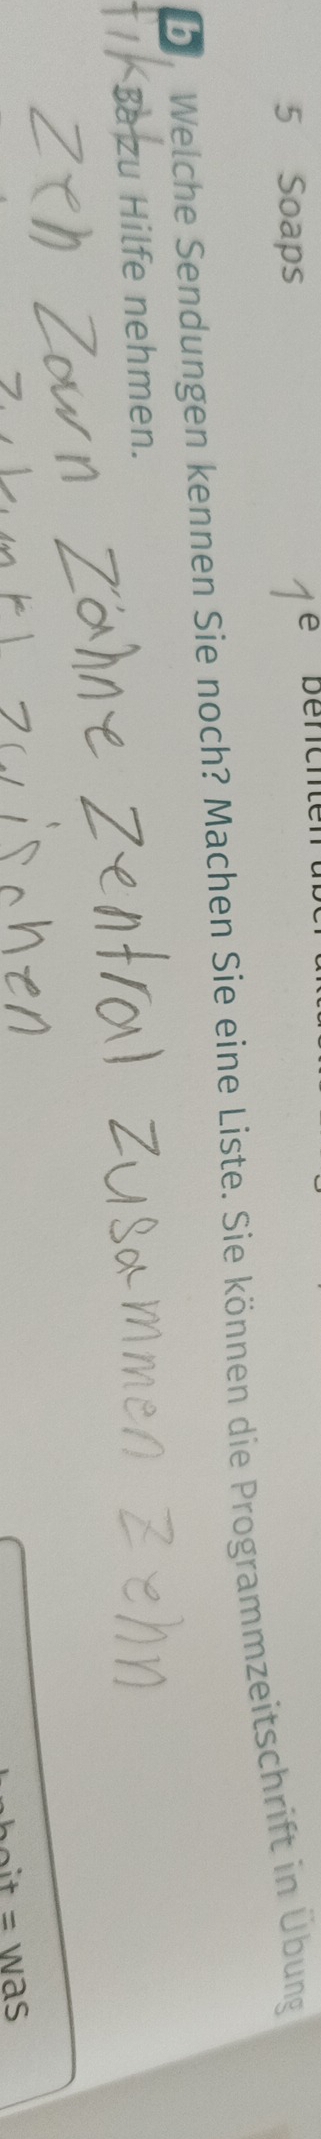 5 Soaps
1 e berichten über
b Welche Sendungen kennen Sie noch? Machen Sie eine Liste. Sie können die Programmzeitschrift in Übung
zu Hilfe nehmen.
Zen Zawn Zähne Zentral Zusammen Zehn
Zwischen
= was